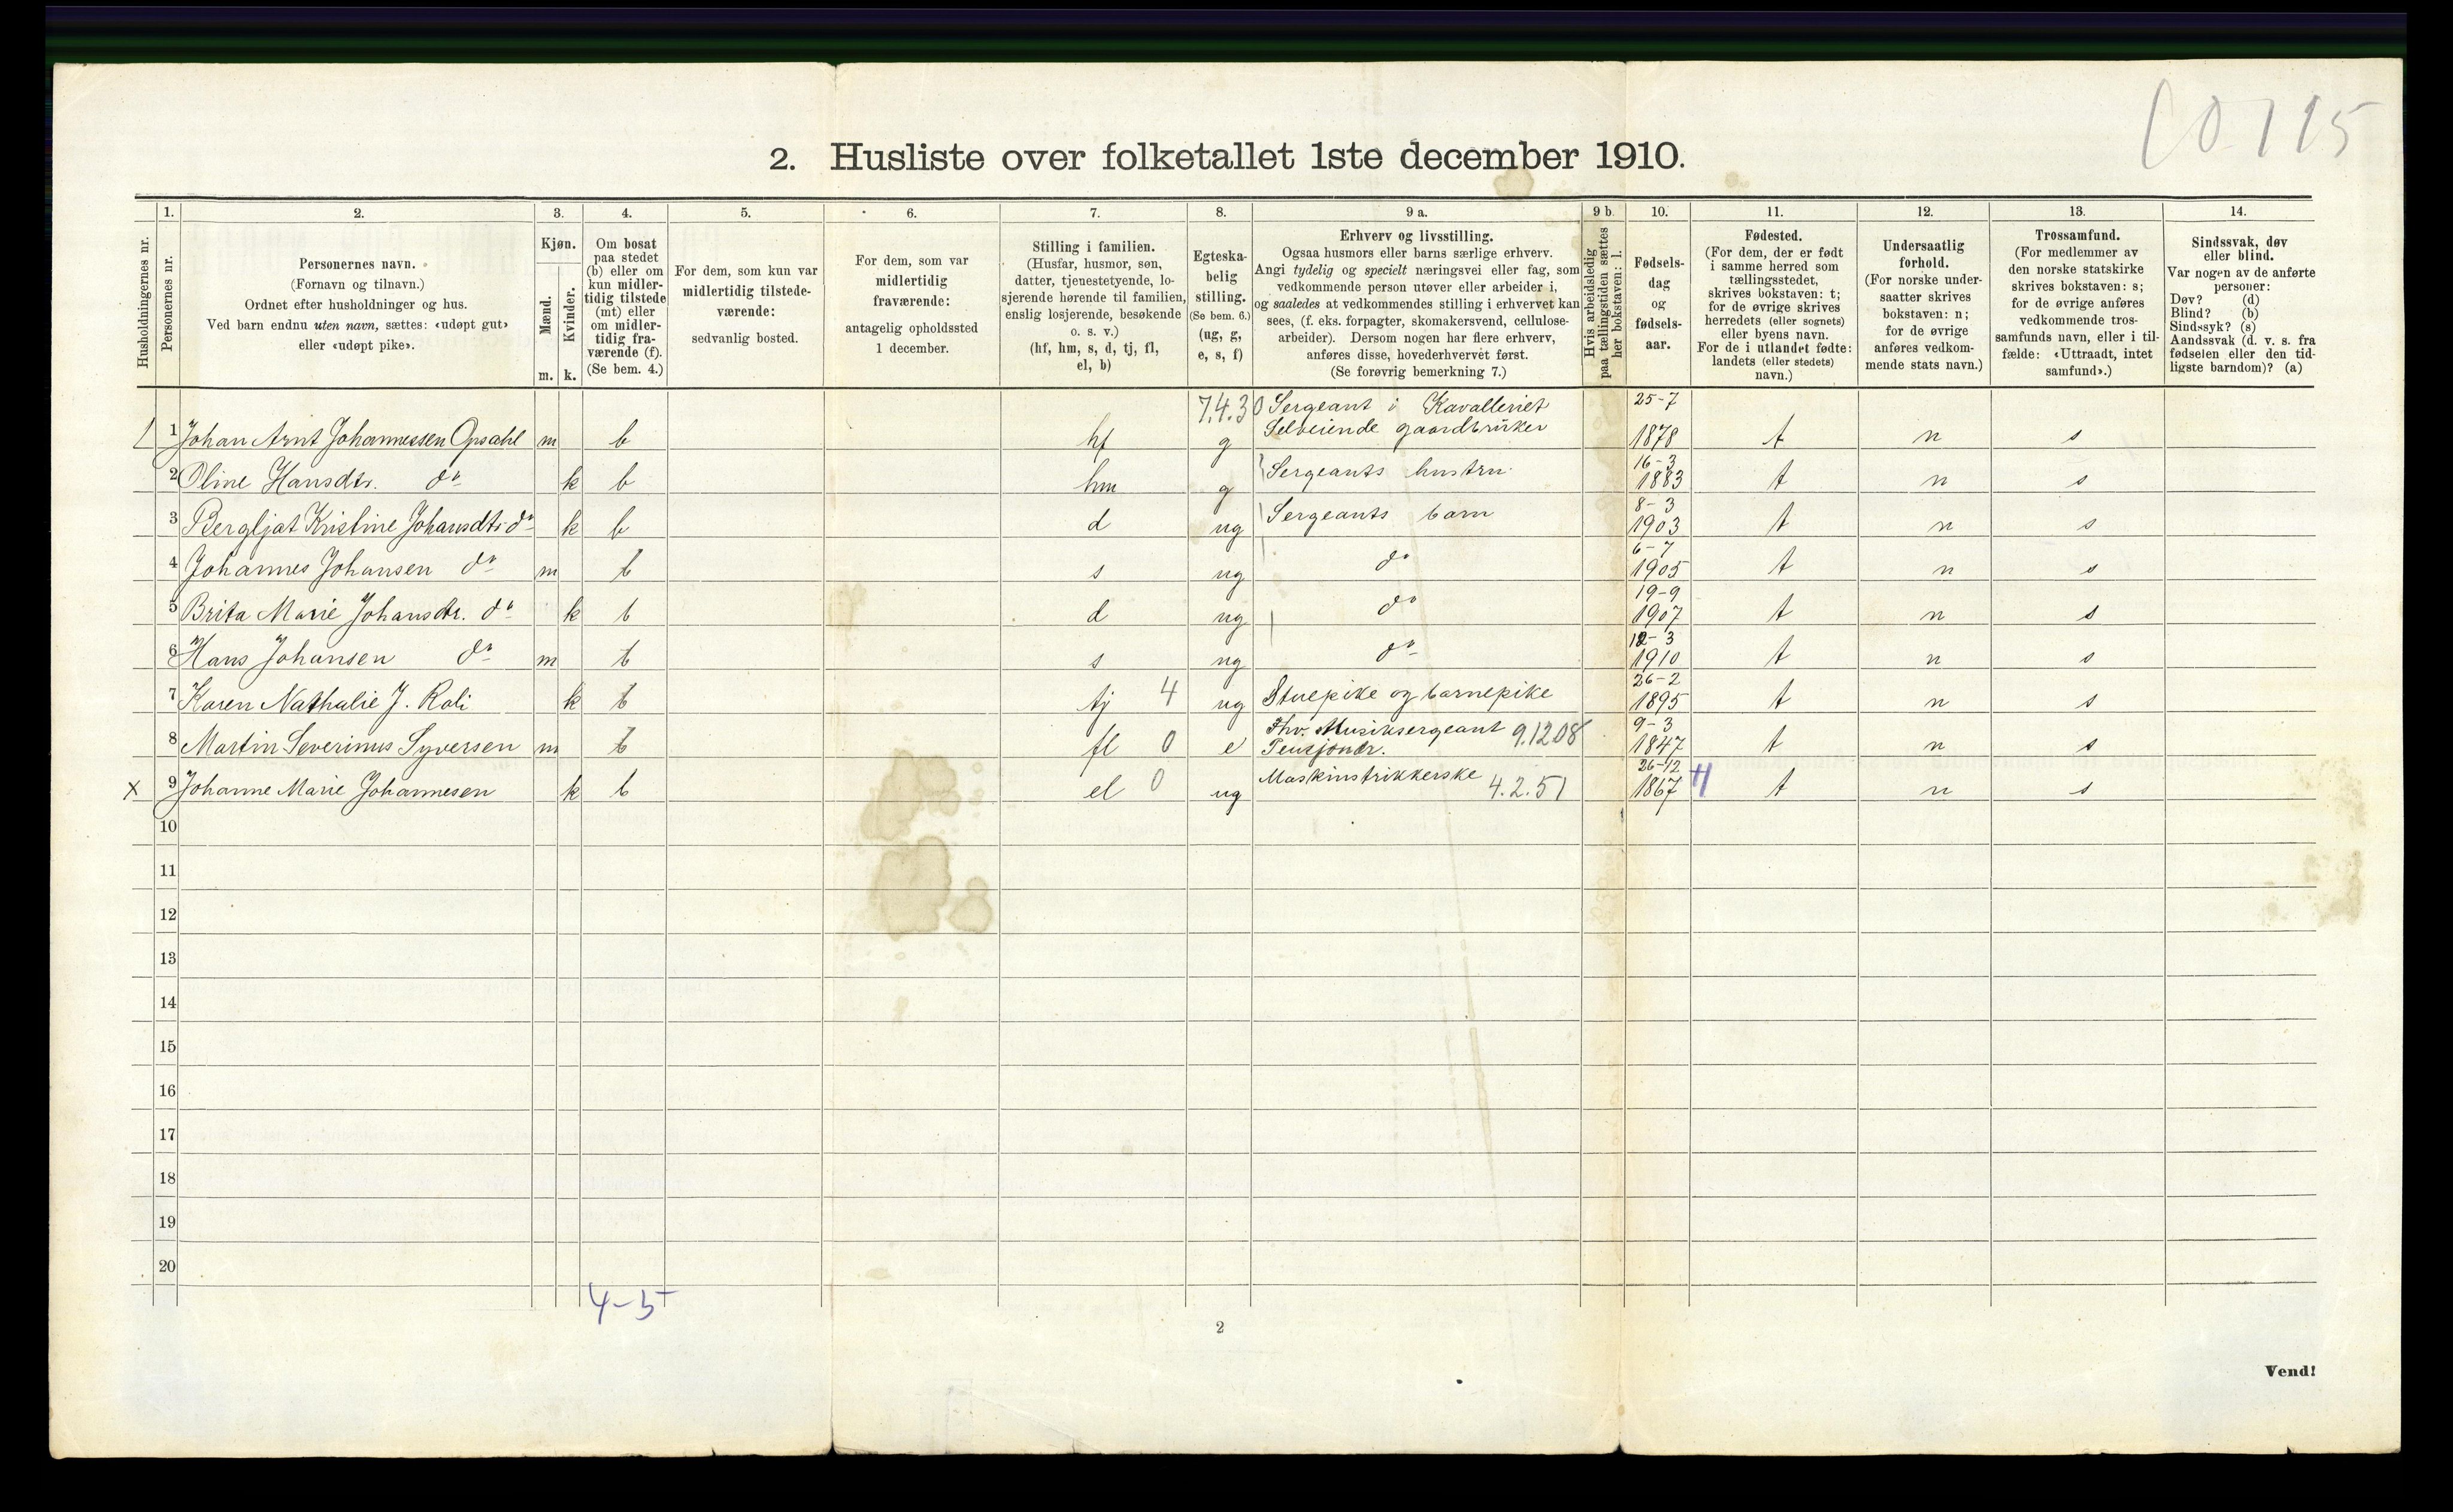 10 115
2. Husliste over folketallet 1ste december 1910.
Husholdningernes nr.
1.
Personernes nr.
2.
Personernes navn.
(Fornavn og tilnavn.)
Ordnet efter husholdninger og hus.
Ved barn endnu uten navn, sættes: «udøpt gut»
eller «udøpt pike».
3.
Kjøn.
Mænd.
m.
Kvinder.
k.
4.
Om bosat
paa stedet
(b) eller om
kun midler-
tidig tilstede
(mt) eller
om midler-
tidig fra-
værende (f).
(Se bem. 4.)
5.
For dem, som kun var
midlertidig tilstede-
værende:
sedvanlig bosted.
6.
For dem, som var
midlertidig
fraværende:
antagelig opholdssted
1 december.
7.
Stilling i familien.
(Husfar, husmor, søn,
datter, tjenestetyende, lo-
sjerende hørende til familien,
enslig losjerende, besøkende
o. s. v.)
(hf, hm, s, d, tj, fl,
el, b)
8.
Egteska-
belig
stilling.
(Se bem. 6.)
(ug, g,
e, s, f)
9 a.
Erhverv og livsstilling.
Ogsaa husmors eller barns særlige erhverv.
Angi tydelig og specielt næringsvei eller fag, som
vedkommende person utøver eller arbeider i,
og saaledes at vedkommendes stilling i erhvervet kan
sees, (f. eks. forpagter, skomakersvend, cellulose-
arbeider). Dersom nogen har flere erhverv,
anføres disse, hovederhvervet først.
(Se forøvrig bemerkning 7.)
9 b.
Hvis arbeidsledig
paa tællingstiden sættes
her bokstaven: l.
10.
Fødsels-
dag
og
fødsels-
aar.
11.
Fødested.
(For dem, der er født
i samme herred som
tællingsstedet,
skrives bokstaven: t;
for de øvrige skrives
herredets (eller sognets)
eller byens navn.
For de i utlandet fødte:
landets (eller stedets)
navn.)
12.
Undersaatlig
forhold.
(For norske under-
saatter skrives
bokstaven: n;
for de øvrige
anføres vedkom-
mende stats navn.)
13.
Trossamfund.
(For medlemmer av
den norske statskirke
skrives bokstaven: s;
for de øvrige anføres
vedkommende tros-
samfunds navn, eller i til-
fælde: «Uttraadt, intet
samfund».)
14.
Sindssvak, døv
eller blind.
Var nogen av de anførte
personer:
Døv? (d)
Blind? (b)
Sindssyk? (s)
Aandssvak (d. v. s. fra
fødselen eller den tid-
ligste barndom)? (a)
7.4.30 Sergeant i Kavalleriet 25-7
1 1 Johan Arnt Johannessen Opsahl m b hf g Selveiende gaardbruker 1878 t n s
2 Oline Hansdtr. do k b hm g Sergeants hustru 16-3 1883 t n s
3 Bergljot Kristine Johansdtr do k b d ug Sergeants barn 8-3 1903 t n s
4 Johannes Johansen do m b s ug do 6-7 1905 t n s
5 Brita Marie Johansdtr. do k b d ug do 19-9 1907 t n s
6 Hans Johansen do m b s ug do 12-3 1910 t n s
7 Karen Nathalie J. Roli k b tj 4 ug Stuepike og barnepike 26-2 1895 t n s
8 Martin Severinus Syversen m b fl 0 e Fhv. Musiksergeant 9.12.08 9-3
Pensjonær. 1847 t n s
x 9 Johanne Marie Johannesen k b el 0 ug Maskinstrikkerske 4.2.51 26-12 1867 t n s
10
11
12
13
14
15
16
17
18
19
20
4-5
2
Vend!